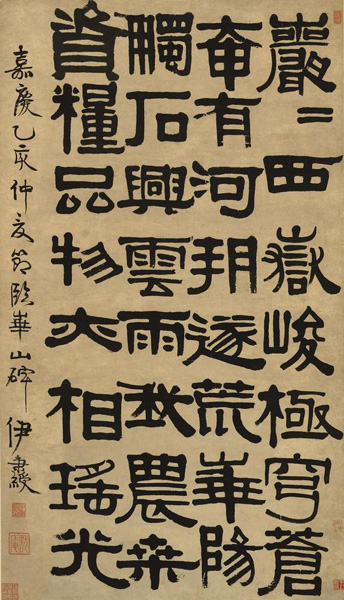 巖〻西嶽峻極穹蒼
奄有河朔遂荒華陽
觸石興雲雨我農桑
資糧品物亦相瑤光
嘉慶乙亥仲夏節臨華山碑 伊秉綬